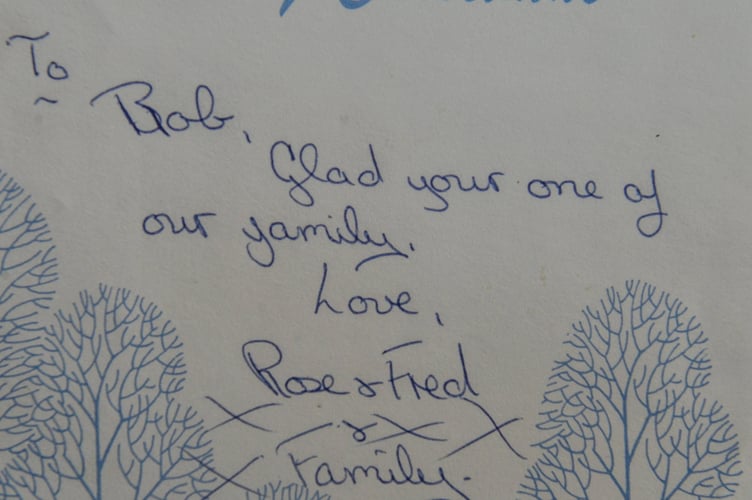 To
Bob,
Glad your one of
our family.
Love,
Rose & Fred
&
Family.